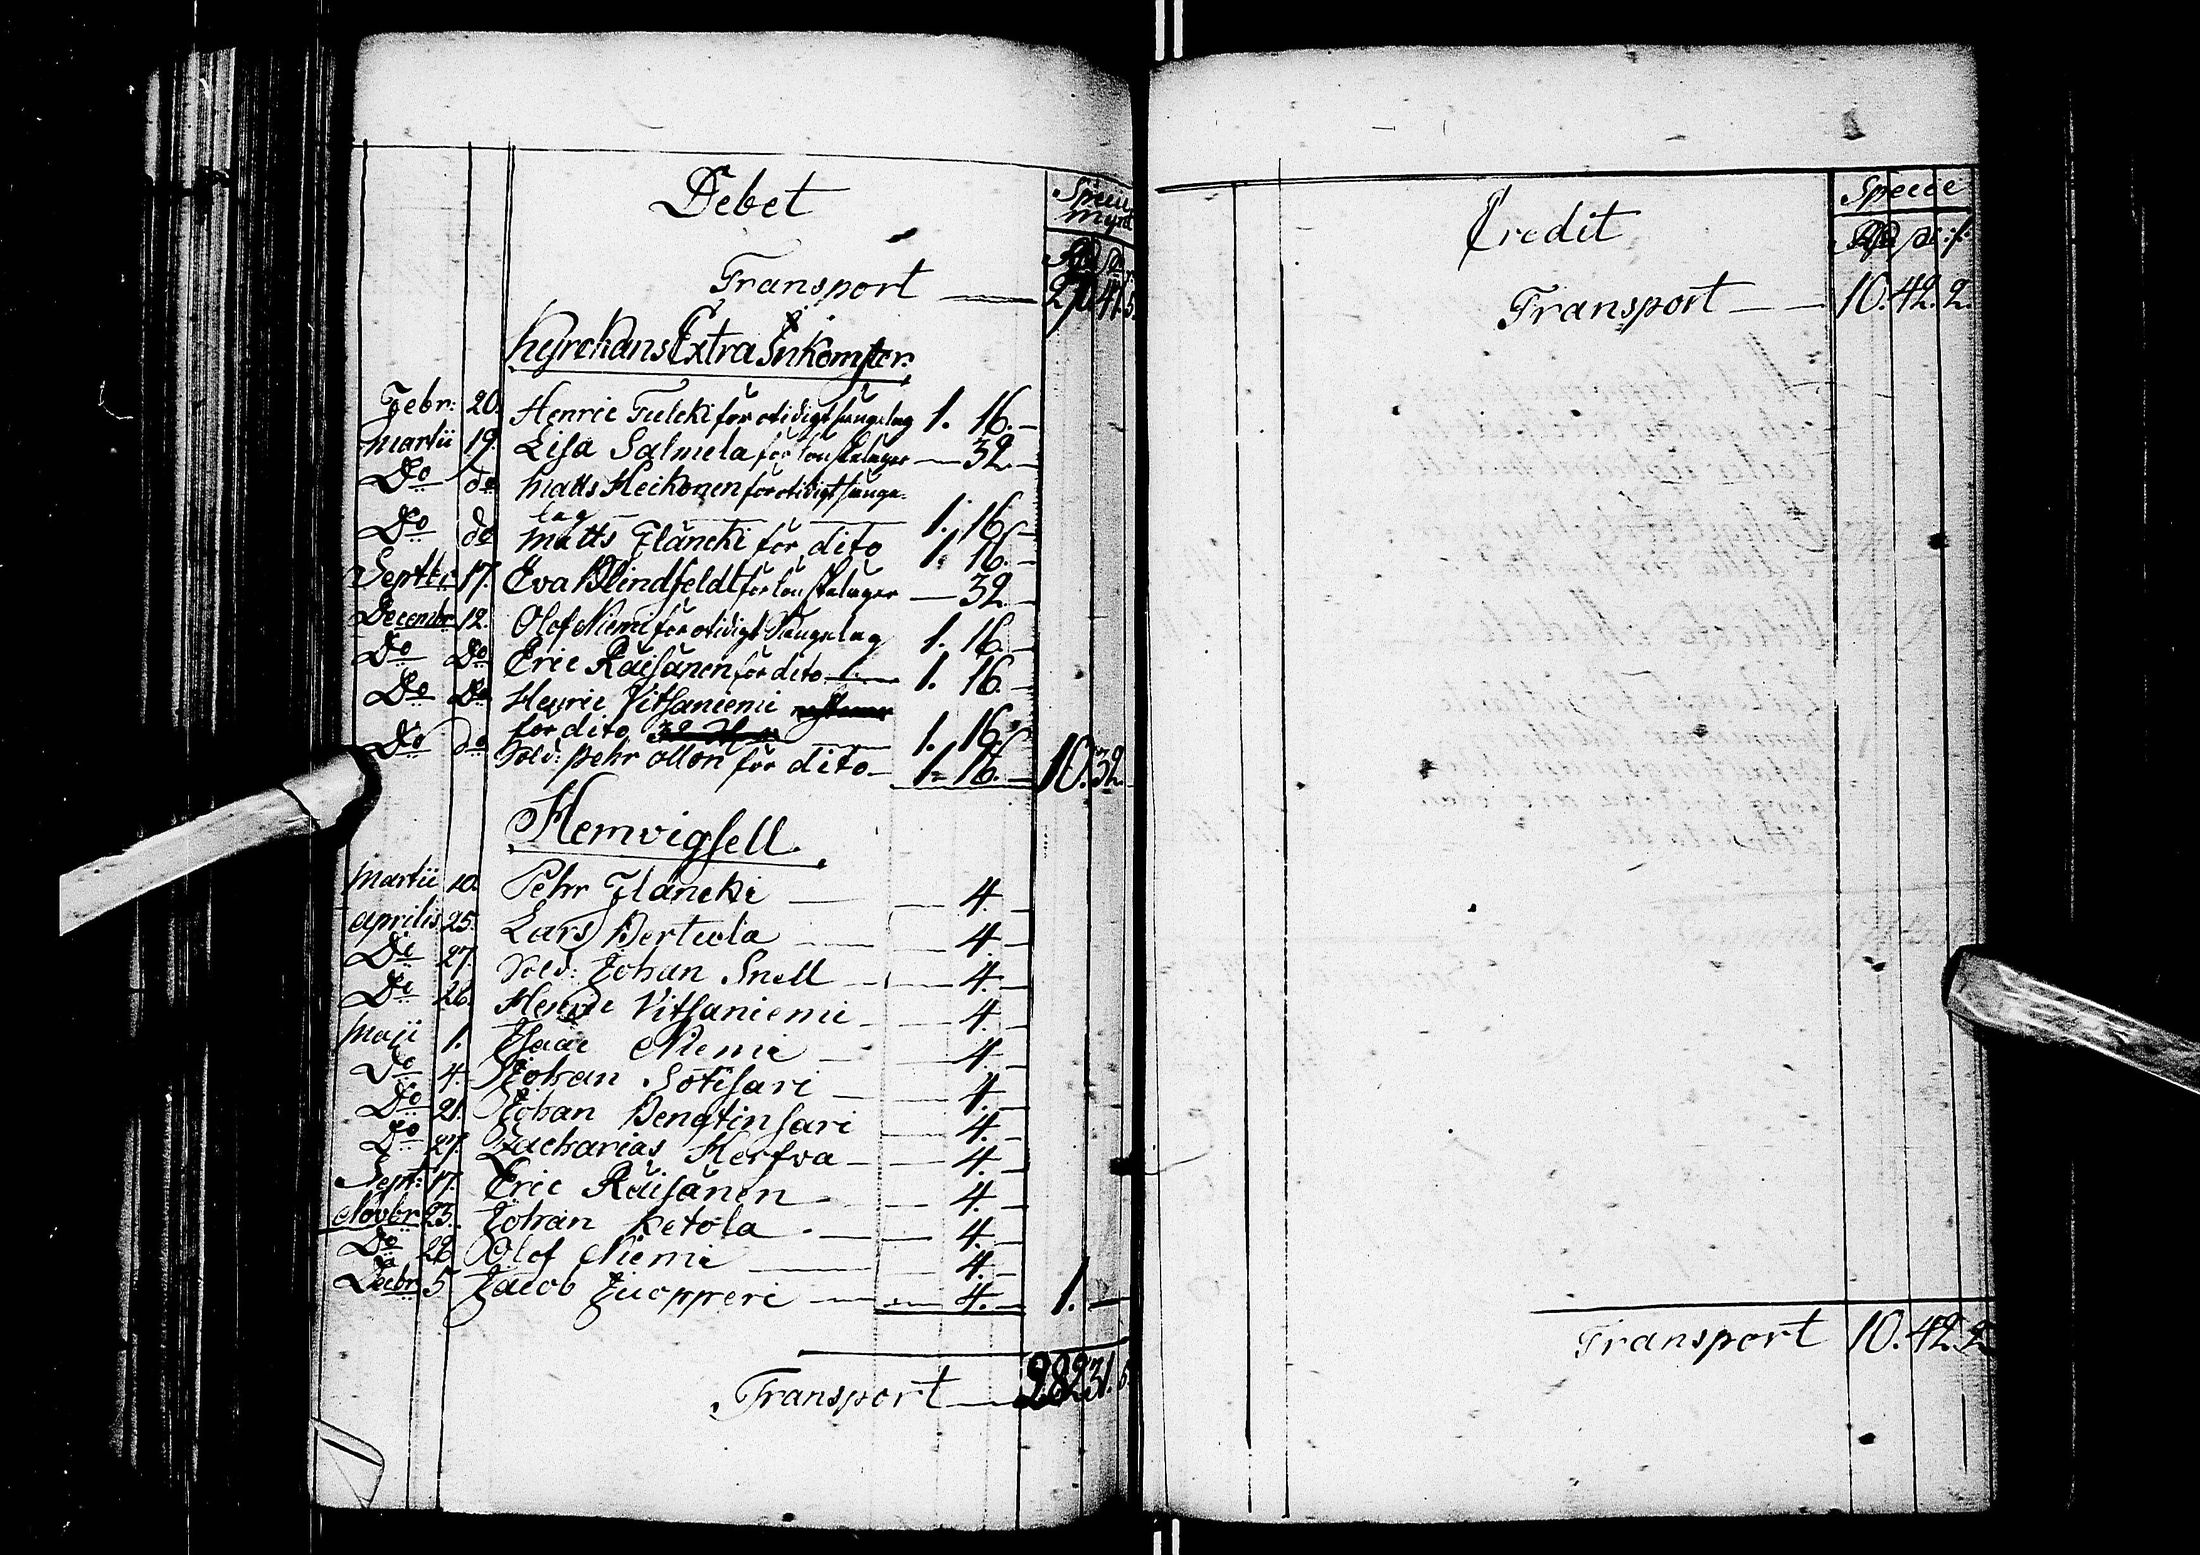 Debet
Specie
mynt
Rd s
Transport — 270. 41. 5.
Kyrckans Extra Inkomster.
Febr: 20. Henric Fulcki för otidigt sängelag 1. 16. —
Martii 19. Lisa Salmela för lönskaläger — 32. —
Do do Matts Heikonen för otidigt sänge-
lag — 1. 16. —
Do do Matts Fläncki för dito 1. 16. —
Septbr 17. Eva Blindfeldt för lönskaläger — 32. —
Decembr 12. Olof Niemi för otidigt Sängelag 1. 16. —
Do Do Eric Räisänen för dito — 1. 16. —
Do Do Henric Vitsaniemi
för dito 1. 16. —
Do do Sold: Pehr Ollon för dito — 1. 16. — 10. 32.
Hemvigsell.
Martii 10. Pehr Fläncki — 4. —
Aprilis 25. Lars Bertula — 4. —
Do 27. Sold: Johan Snell — 4. —
Do 26. Henric Vitsaniemi — 4. —
Maji 1. Isaac Niemi — 4. —
Do 4. Johan Sotisari — 4. —
Do 21. Johan Bengtinsari — 4. —
Do 27. Zacharias Kerfva — 4. —
Sept: 17. Eric Räisänen — 4. —
Novbr 23. Johan Ketola — 4. —
Do 28 Olof Niemi — 4. —
Decbr 5 Jacob Juopperi — 4. — 1. —
Transport — 282. 31. 5.
Credit
Specie
Rd s r
Transport — 10. 42. 2.
Transport 10. 42. 2.